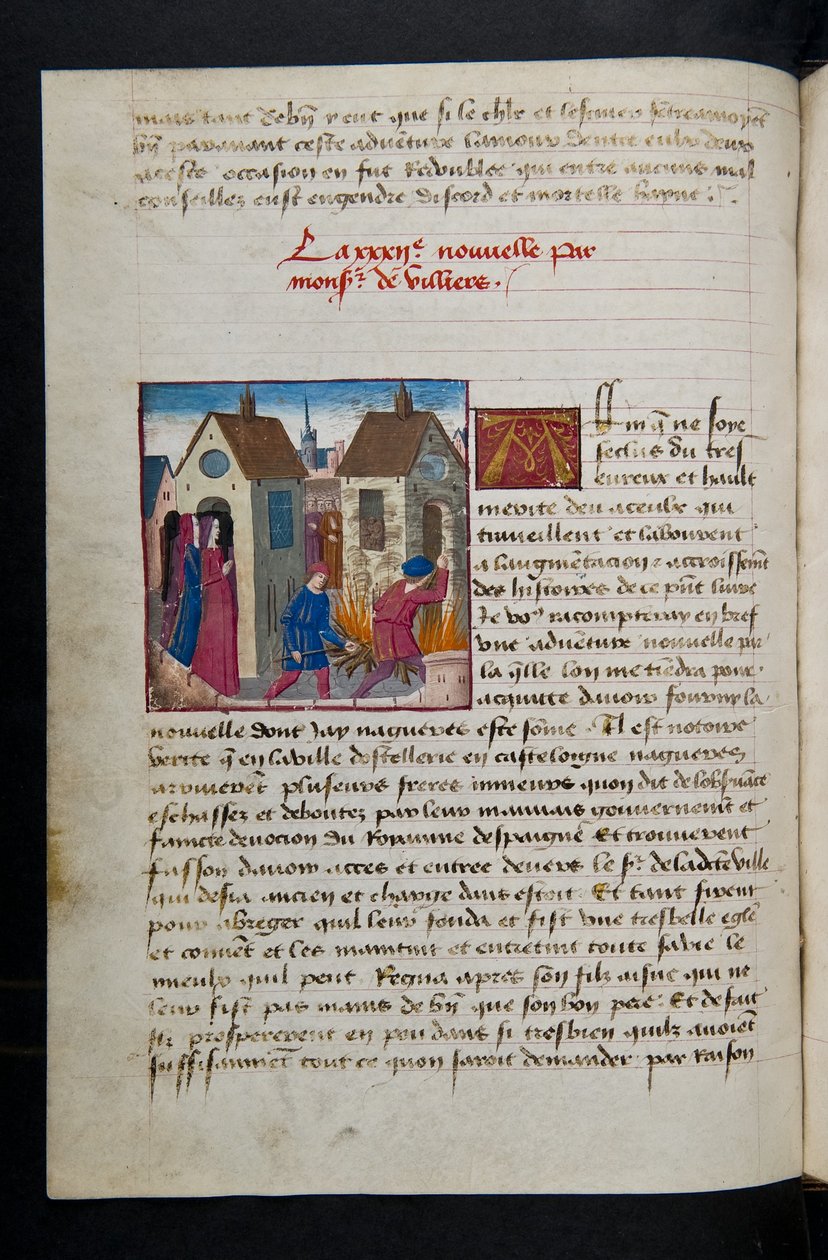 mais tant de bn̄ y eut que si le chlr̄ et lescuier sentreamoyēt
bn̄ par auant ceste aduenture lamour dentre eulx deux
a ceste occasion en fut redoublee qui entre aucuns mal
conseillez eust engendre discord et mortelle hayne
La xxxiie nouuelle par
monsr de villiers.
Affin q̄ ne soye
seclus du tres
eureux et hault
merite deu a ceulx qui
trauaillent et labourent
a laugmentacion & accroissemt
des histoires de ce pnt liure
Je vos racompteray en bref
vne aduenture nouuelle par
la qlle lon me tiendra pour
acquitte dauoir fourny la
nouuelle dont Jay nagueres este som̄e. Il est notoire
verite q̄ en la ville dostellerie en casteloigne nagueres
arriuerēt pluseurs freres mineurs quon dit de lobseruāce
eschassez et deboutez par leur mauuais gouuernemēt et
faincte deuocion du Royaume despaigne Et trouuerent
fasson dauoir acces et entree deuers le sr de ladcte ville
qui desia ancien et charge dans estoit Et tant firent
pour abreger quil leur fonda et fist vne tresbelle egle
et conuēt et les maintint et entretint toute sa vie le
mieulx quil peut Regna apres son filz aisne qui ne
leur fist pas mains de bn̄ que son bon pere. Et de fait
Ilz prospererent en peu dans si tresbien quilz auoiēt
suffisammēt tout ce quon saroit demander par raison